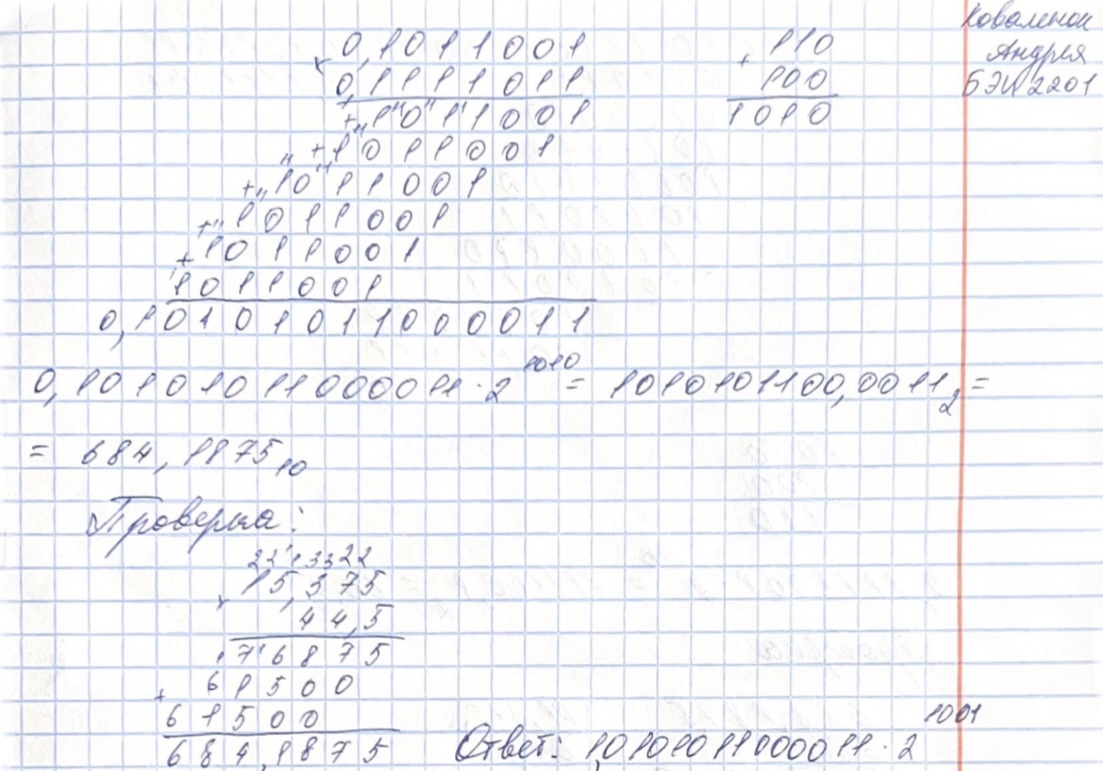 Коваленок
Андрея
БЭИ2201
0,1011001
×
0,1111011
+1011001
+1011001
+1011001
+1011001
+1011001
1011001
0,10101011000011
110
+
100
1010
0,10101011000011·2^1010 = 1010101100,0011₂ =
= 684,1875₁₀
Проверка:
2213322
15,375
×
44,5
76875
+ 61500
61500
684,1875
Ответ: 1,0101011000011·2^1001